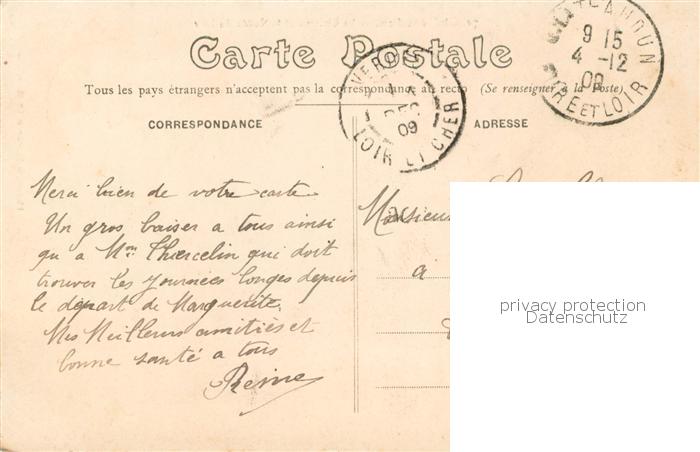 Carte Postale
Tous les pays étrangers n'acceptent pas la correspondance au recto (Se renseigner à la Poste)
CORRESPONDANCE
ADRESSE
9 15
4 -12
09
RE ET LOIR
09
LOIR ET CHER
Merci bien de votre carte
Un gros baiser a tous ainsi
qu a Mme Thiercelin qui doit
trouver les journées longes depuis
le départ de Marguerite
Mes Meilleurs amitiés et
bonne santé a tous
Reine
Monsieur
a
privacy protection
Datenschutz